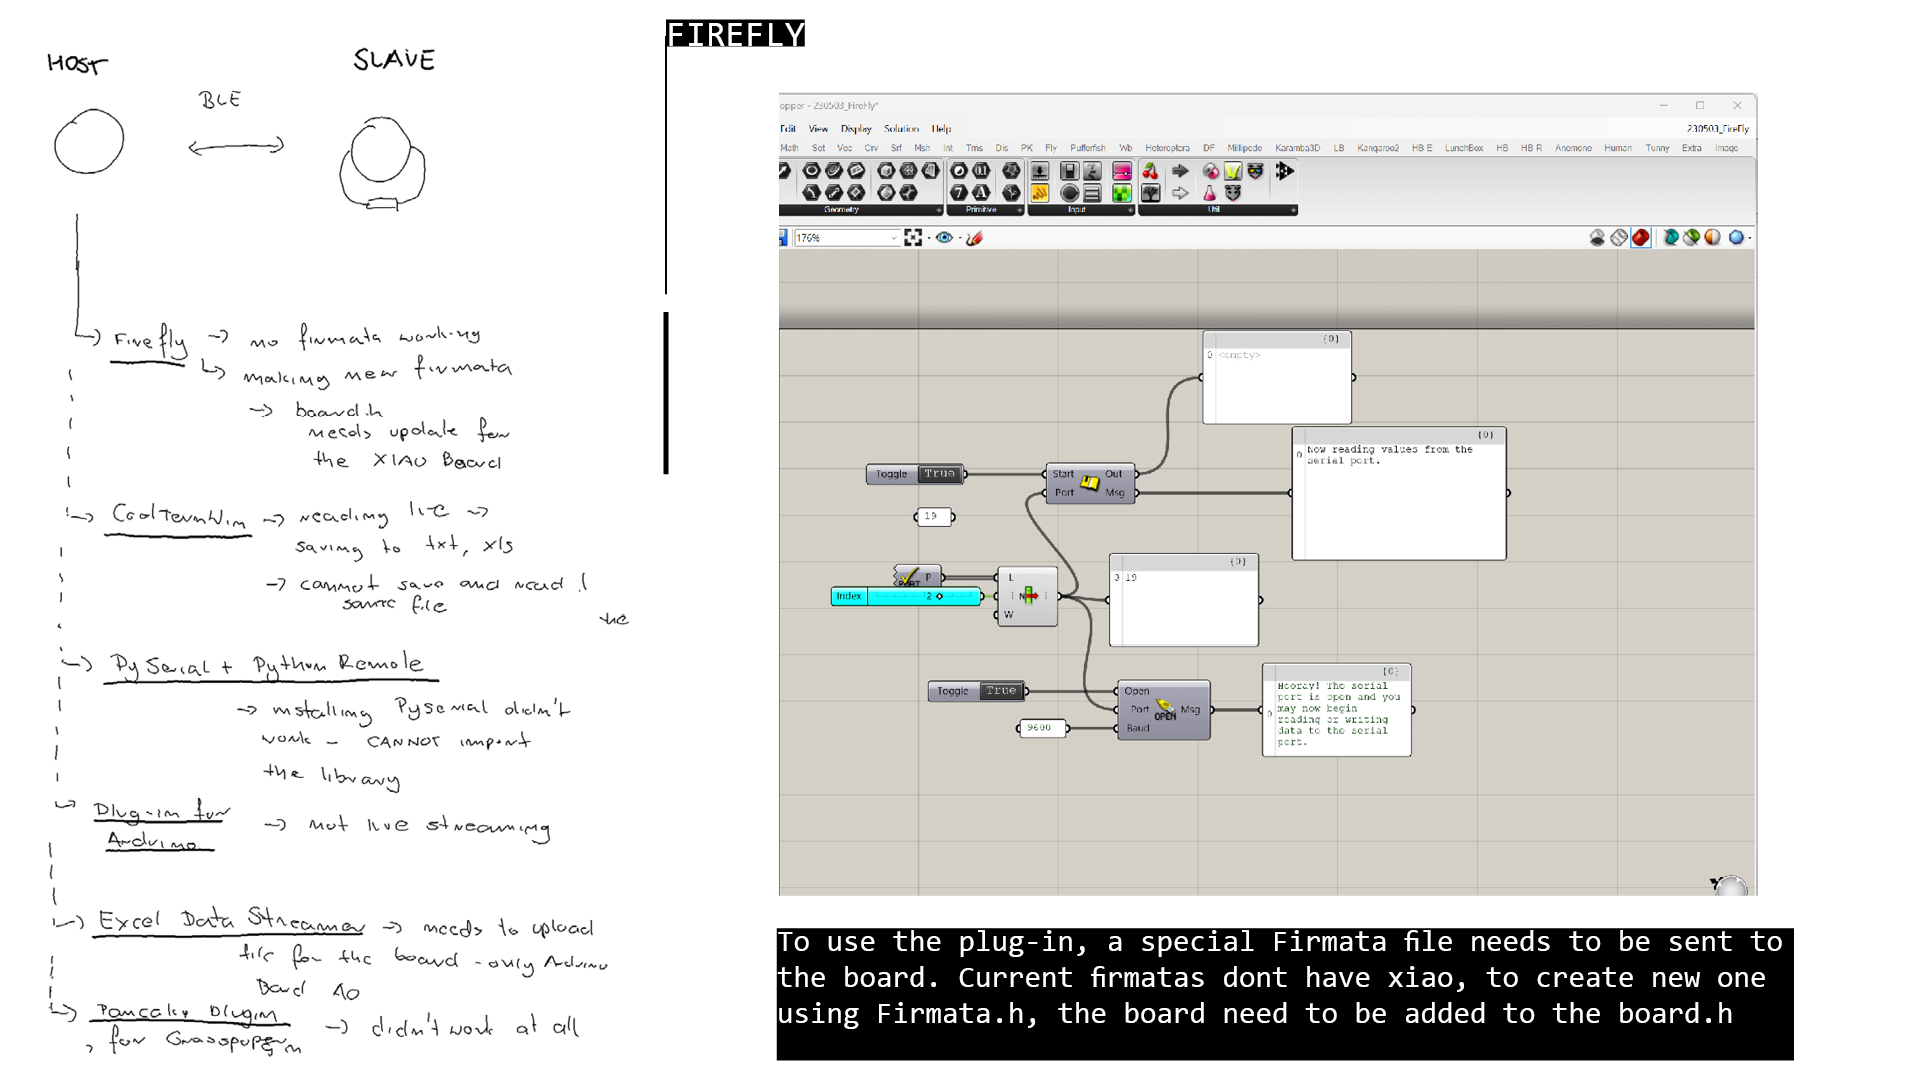 HOST
SLAVE
BLE
Firefly → no firmata working
↳ making new firmata
→ board.h
needs update for
the XIAO Board
CoolTermWin → reading live →
saving to txt, xls
→ cannot save and read
same file
the
PySerial + Python Remote
→ installing Pyserial didn't
work - CANNOT import
the library
Plug-in for
Arduino → not live streaming
Excel Data Streamer → needs to upload
file for the board - only Arduino
Board
Pancake Plugin → didn't work at all
for
FIREFLY
opper - 230503_FireFly*
Edit View Display Solution Help
230503_FireFly
Math Set Vec Crv Srf Msh Int Trns Dis PK Fly Pufferfish Wb Heteroptera DF Millipede Karamba3D LB Kangaroo2 HB E LunchBox HB HB R Anemone Human Tunny Extra Image
Geometry Primitive Input Util
176%
{0}
0 <empty>
{0}
0 Now reading values from the
serial port.
Toggle True
Start Out
Port Msg
19
{0}
0 19
PORT P
Index 2
L
i N i
W
Toggle True
9600
Open
Port Msg
Baud
OPEN
{0}
Hooray! The serial
port is open and you
0 may now begin
reading or writing
data to the serial
port.
To use the plug-in, a special Firmata file needs to be sent to
the board. Current firmatas dont have xiao, to create new one
using Firmata.h, the board need to be added to the board.h